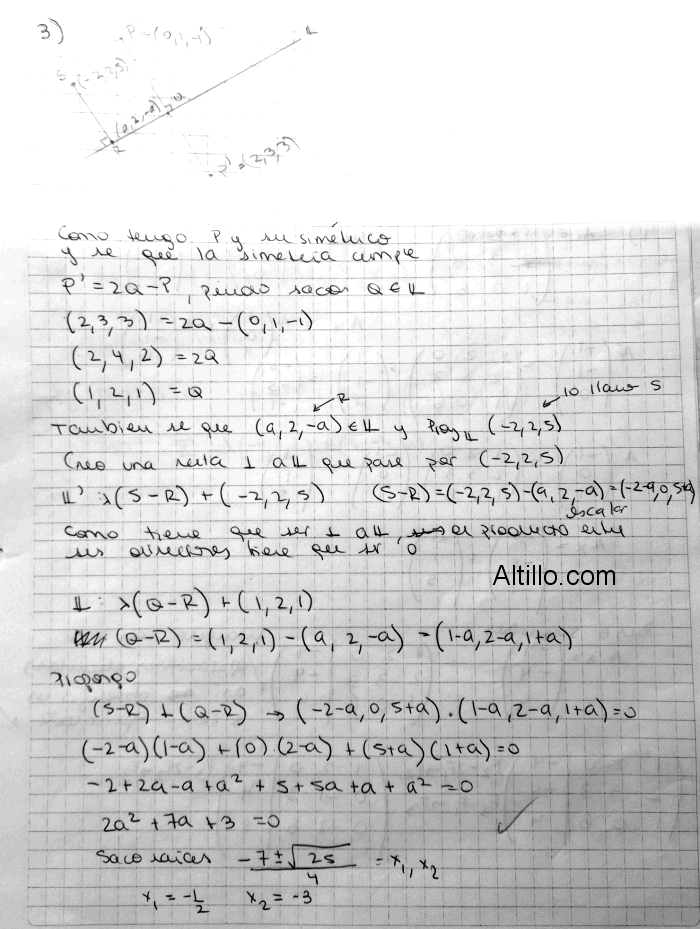 3)
P = (0,1,-1)
S (-2,2,5)
(a,2,-a)
Q
R
P' = (2,3,3)
Como tengo P y su simétrico
y se que la simetria cumple
P' = 2Q - P, puedo sacar Q ∈ L
(2,3,3) = 2Q - (0,1,-1)
(2,4,2) = 2Q
(1,2,1) = Q
R
lo llamo S
Tambien se que (a,2,-a) ∈ L y Proy L (-2,2,5)
Creo una recta ⊥ a L que pase por (-2,2,5)
L': λ(S-R) + (-2,2,5) (S-R) = (-2,2,5) - (a,2,-a) = (-2-a,0,5+a)
escalar
Como tiene que ser ⊥ a L, el producto entre
sus directores tiene que ser 0
Altillo.com
L: λ(Q-R) + (1,2,1)
(Q-R) = (1,2,1) - (a, 2,-a) = (1-a,2-a,1+a)
Propongo
(S-R) ⊥ (Q-R) → (-2-a,0,5+a).(1-a,2-a,1+a)=0
(-2-a)(1-a) + (0).(2-a) + (5+a)(1+a)=0
-2+2a-a+a² + 5+5a+a+a² =0
2a² +7a +3 =0
Saco raices -7±√25 / 4 = x₁, x₂
x₁ = -1/2 x₂ = -3